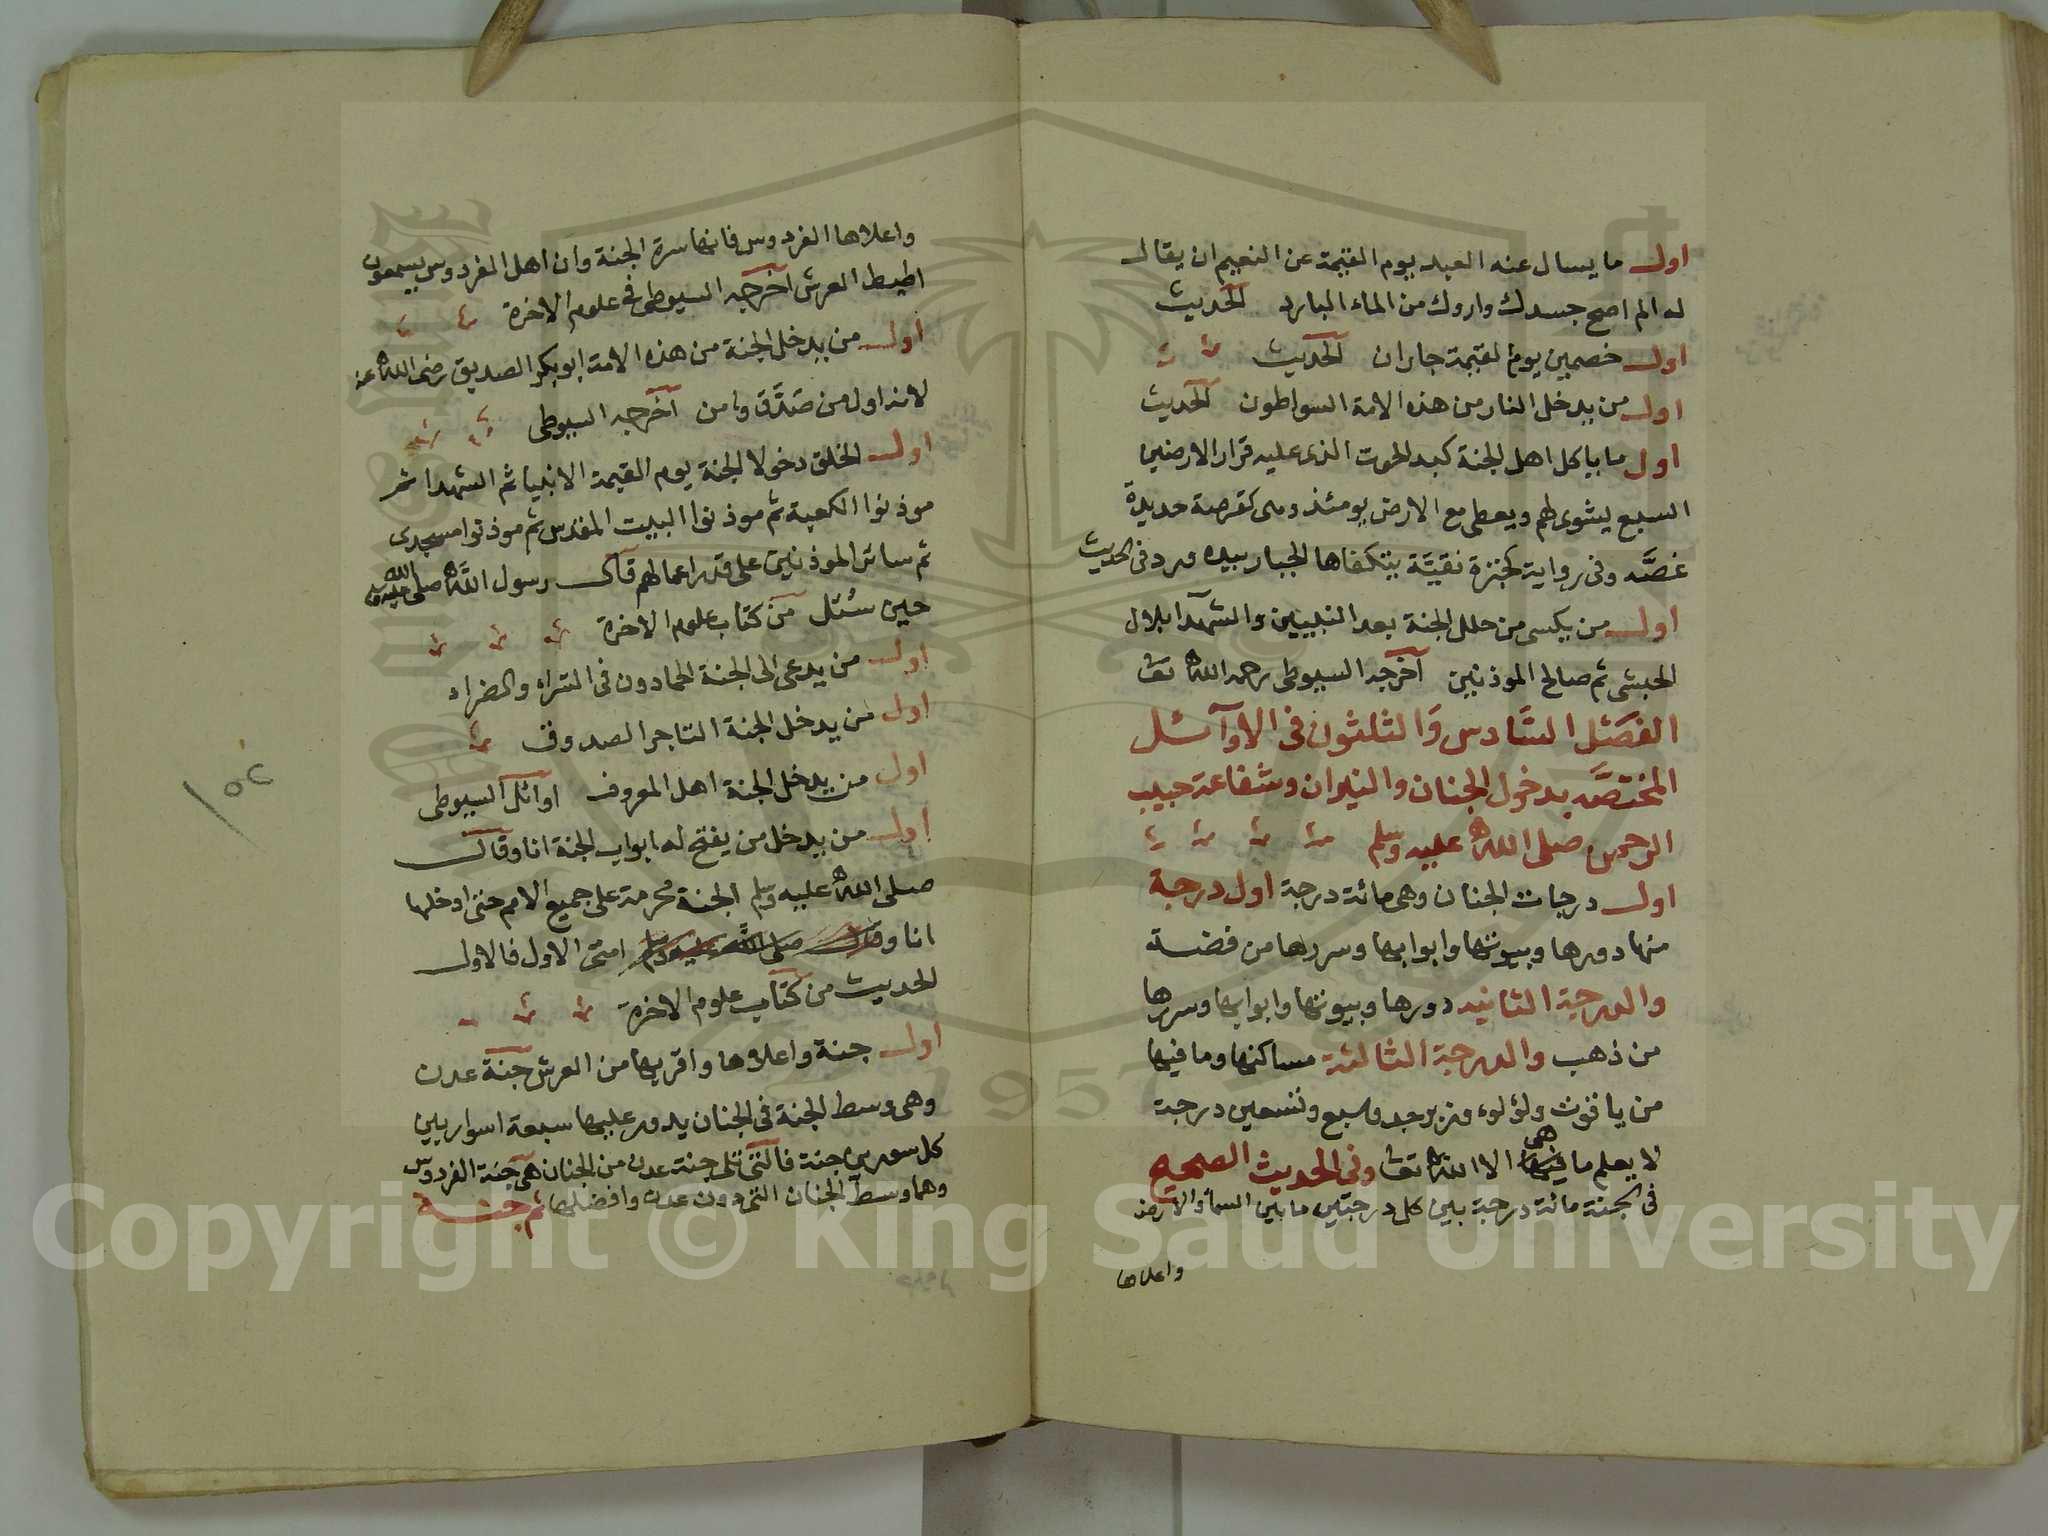 اول ما يسال عنه العبد يوم القيمة عن النعيم ان يقال
له الم اصح جسدك واروك من الماء البارد الحديث
اول خصمين يوم القيمة جاران الحديث
اول من يدخل النار من هذه الامة السواطون الحديث
اول ما ياكل اهل الجنة كبد الحوت الذى عليه قرار الارضين
السبع ليشوى لهم ويعطى مع الارض يومئذ وهى كقرصة حديدة
غضه وفى رواية كخبزة نقيّة يتكفاها الجبار بيده ورد فى الحديث
اول من يكسى من حلل الجنة بعد النبيين والشهدآ بلال
الحبشى ثم صالح الموذنين آخرجه السيوطى رحمه الله تعا
الفصل السادس والثلثون فى الاوآئل
المختصّه بدخول الجنان والنيران وشفاعة حبيب
الرحمن صلى الله عليه وسلم
اول درجات الجنان وهى مائة درجة اول درجة
منها دورها وبيوتها وابوابها وسررها من فضة
والدرجة الثانيه دورها وبيوتها وابوابها وسررها
من ذهب والدرجة الثالثة مساكنها وما فيها
من ياقوت ولؤلوء وزبرجد وسبع وتسعين درجة
لا يعلم ما هى الا الله تعا وفى الحديث الصحيح
فى الجنة مائة درجة بين كل درجتين ما بين السمآ والارض
واعلاها
واعلاها الفردوس فانها سرة الجنة وان اهل الفردوس يسمعون
اطيط العرش آخرجه السيوطى فى علوم الاخرة
اول من يدخل الجنة من هذه الامة ابو بكر الصديق رضى الله عنه
لانه اول من صدّق وامن آخرجه السيوطى
اول الخلق دخولا الجنة يوم القيمة الانبيا ثم الشهدا ثم
موذنوا الكعبة ثم موذنوا البيت المقدس ثم موذنوا مسجدى
ثم سائر الموذنين على قدر اعمالهم قال رسول الله صلى الله عليه وسلم
حين سئل من كتاب علوم الاخرة
اول من يدعى الى الجنة الحمادون فى السرآء والضراء
اول من يدخل الجنة التاجر الصدوق
اول من يدخل الجنة اهل المعروف اوائل السيوطى
اول من يدخل من يفتح له ابواب الجنة انا وقال
صلى الله عليه وسلم الجنة محرمة على جميع الامم حتى ادخلها
انا و امتى الاول فالاول
الحديث من كتاب علوم الاخرة
اول جنة واعلاها واقربها من العرش جنة عدن
وهى وسط الجنة فى الجنان يدور عليها سبعة اسوار بين
كل سورين جنة فالتى تلى جنة عدن من الجنان هى جنة الفردوس
وهما وسط الجنان التى دون عدن وافضلها ثم جنة
١٥٢
1957
Copyright © King Saud University